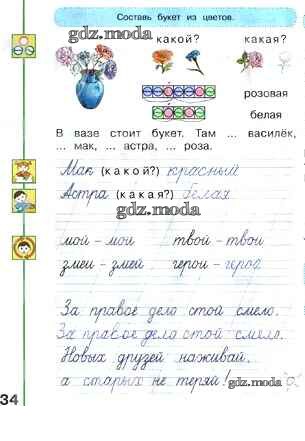 Составь букет из цветов.
gdz.moda
какой? какая?
розовая
белая
В вазе стоит букет. Там ... василёк,
... мак, ... астра, ... роза.
Мак (какой?) красный
Астра (какая?) белая
gdz.moda
мой – мои твой – твои
змеи – змей герои – герой
gdz.moda
За правое дело стой смело.
За правое дело стой смело.
Новых друзей наживай,
а старых не теряй! gdz.moda
34